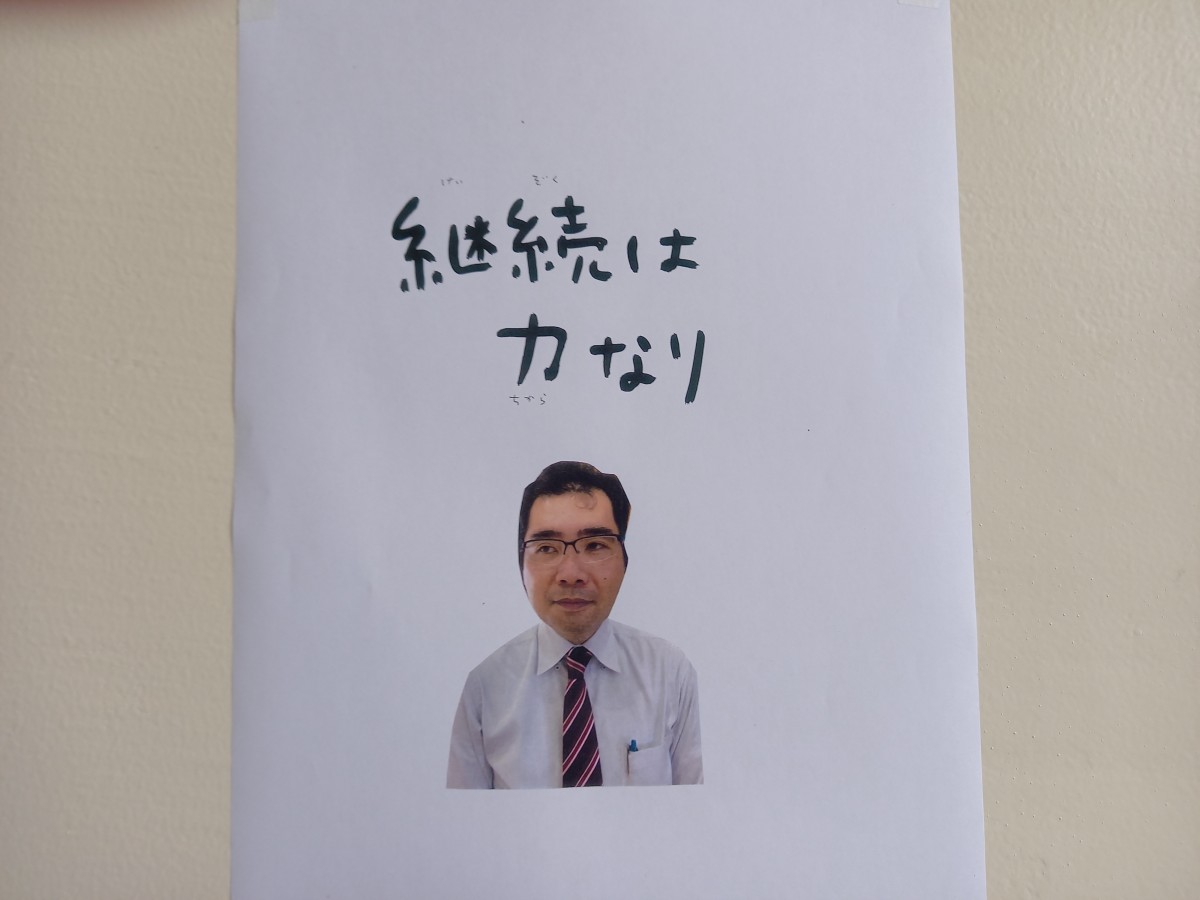 けい ぞく
継続は
力なり
ちから